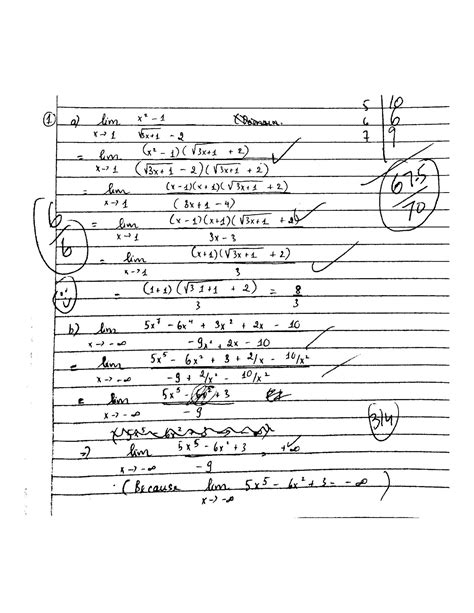 5 | 10
① a) lim x→1 (x² - 1)/(√3x+1 - 2)
6 | 6
7 | 9
= lim x→1 (x² - 1)(√3x+1 + 2)/(√3x+1 - 2)(√3x+1 + 2) ✓
67.5/70
= lim x→1 (x-1)(x+1)(√3x+1 + 2)/(3x+1 - 4)
6/6
= lim x→1 (x-1)(x+1)(√3x+1 + 2)/3x-3 ✓
= lim x→1 (x+1)(√3x+1 + 2)/3 ✓
= (1+1)(√3.1+1 + 2)/3 = 8/3
b) lim x→-∞ (5x⁷ - 6x⁴ + 3x² + 2x - 10)/(-9x² + 2x - 10)
= lim x→-∞ (5x⁵ - 6x² + 3 + 2/x - 10/x²)/(-9 + 2/x - 10/x²)
= lim x→-∞ (5x⁵ - 6x² + 3)/-9
3/4
=) lim x→-∞ (5x⁵ - 6x² + 3)/-9 = +∞
(Because lim x→-∞ 5x⁵ - 6x² + 3 = -∞)